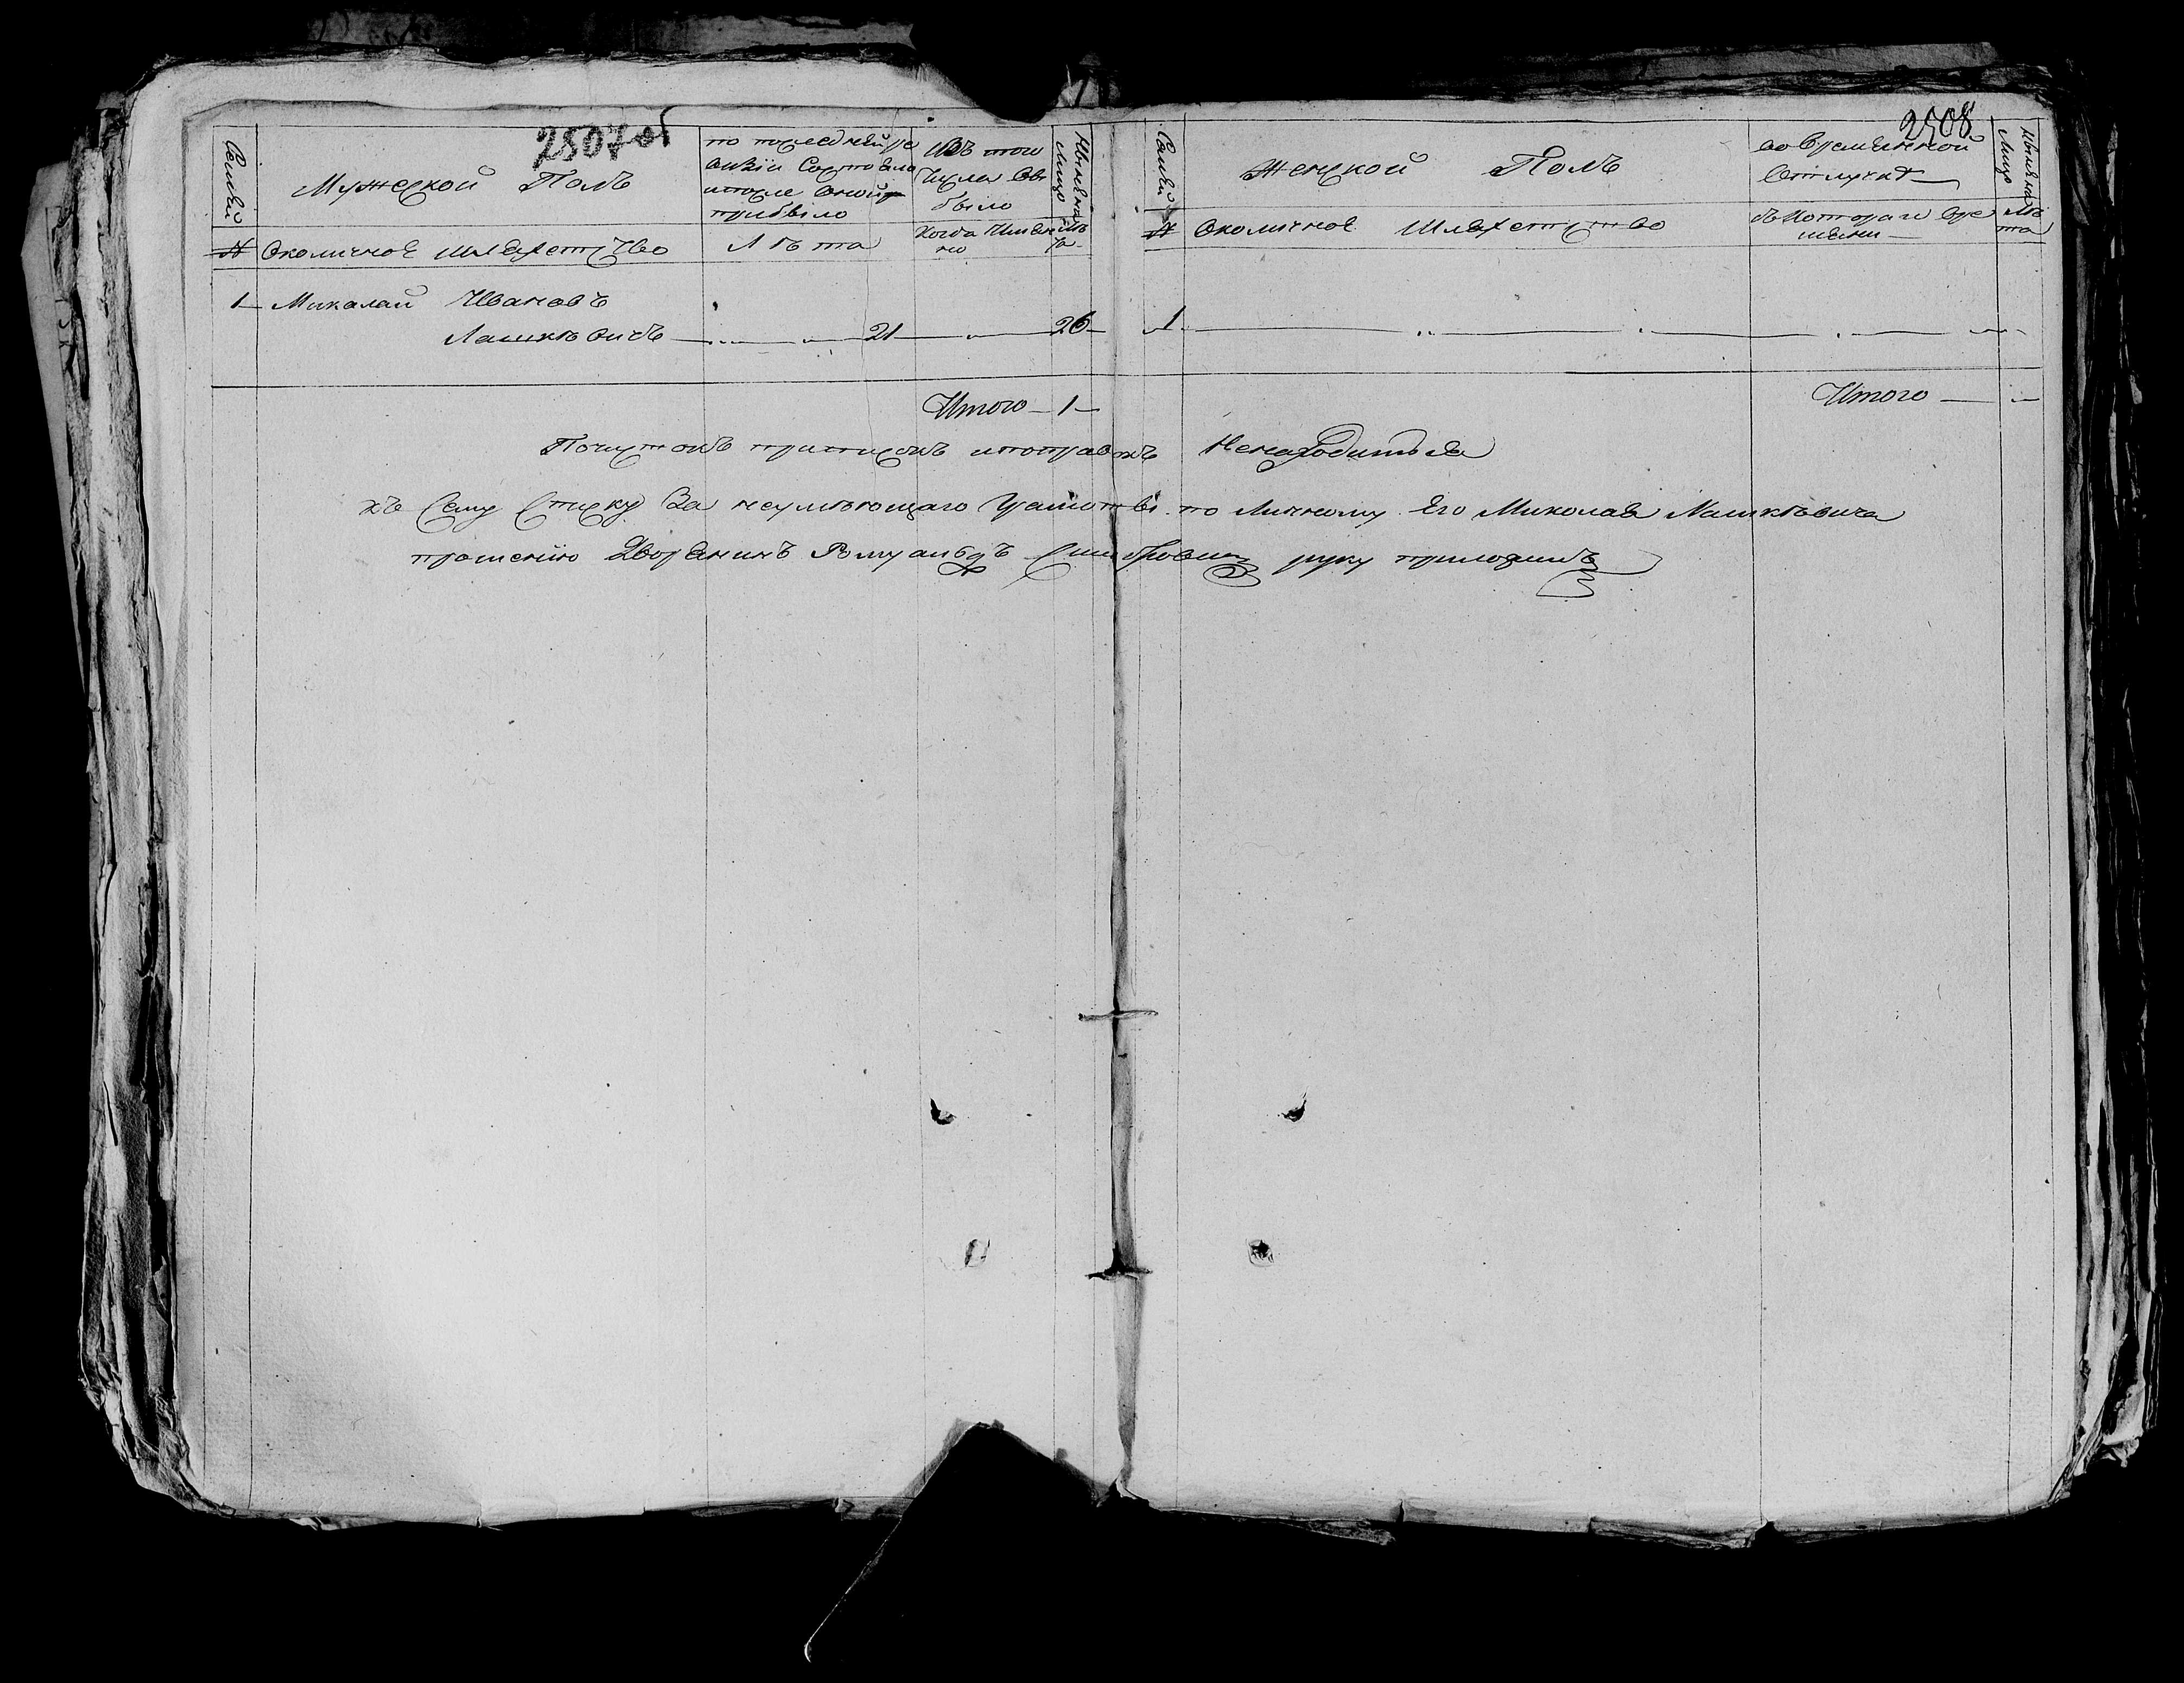 2507 об
2508
Семьи
Мужеской Полъ
по последней ре
визіи Состояло
ипосле Оной
прибыло
Изъ того
Числа Вы
было
Ныне на
лицо
№ Околичное Шляхетство
Лѣта
Когда Имен
но
Лѣ
та
1 Микалай Ивановъ
Лашкѣвичъ 21 26
Итого 1
Семьи
Женской Полъ
во временной
Отлучкѣ
Ныне на
лицо
№ Околичное Шляхетство
съ Котораго вре
мени
Лѣ
та
1
Итого
Почистокъ приписокъ ипоправокъ Ненаходиться
къ Сему Списку За неумѣющаго Грамотѣ по Личному Его Миколая Лашкѣвича
прошенію Дворянинъ Ромуальдъ руку приложилъ